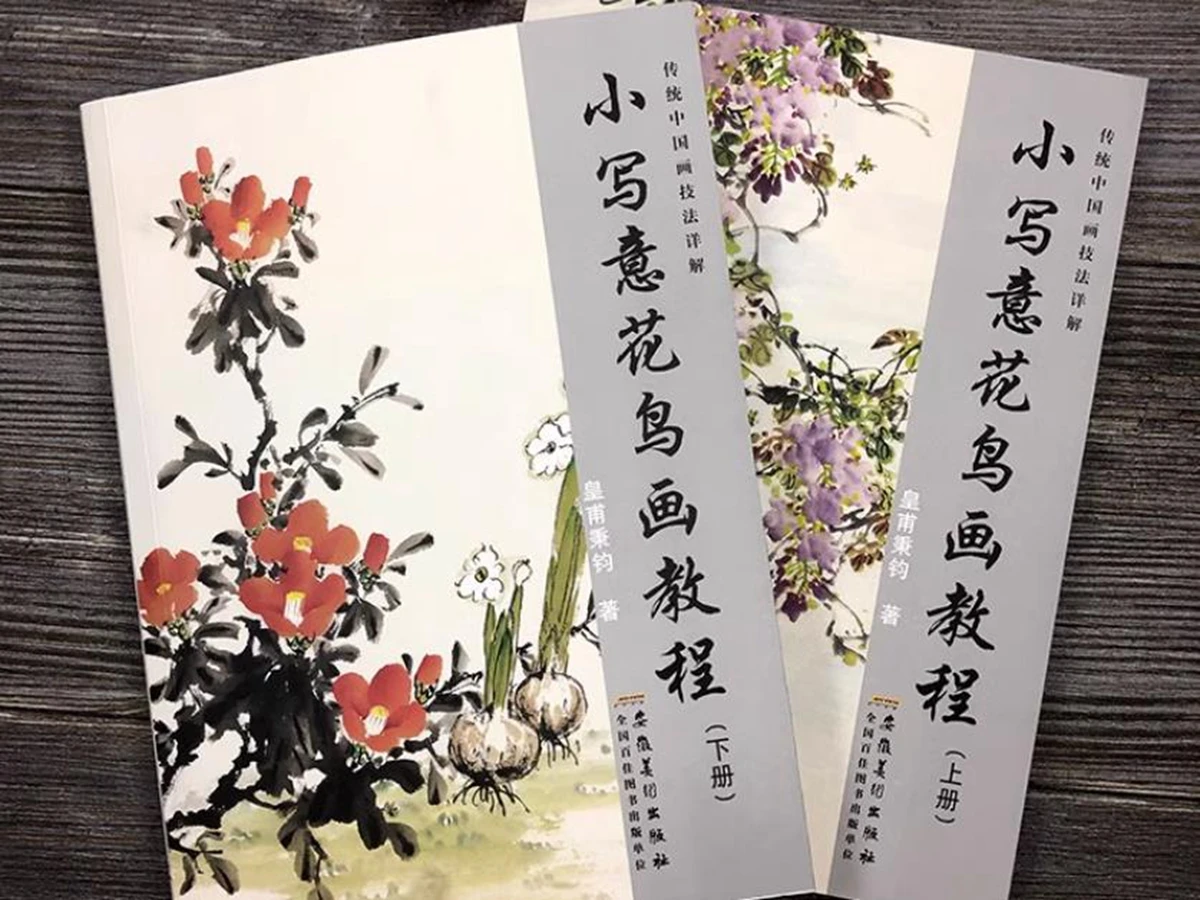 传统中国画技法详解
小写意花鸟画教程
(下册)
皇甫秉钧 著
安徽美术出版社
全国百佳图书出版单位
传统中国画技法详解
小写意花鸟画教程
(上册)
皇甫秉钧 著
安徽美术出版社
全国百佳图书出版单位